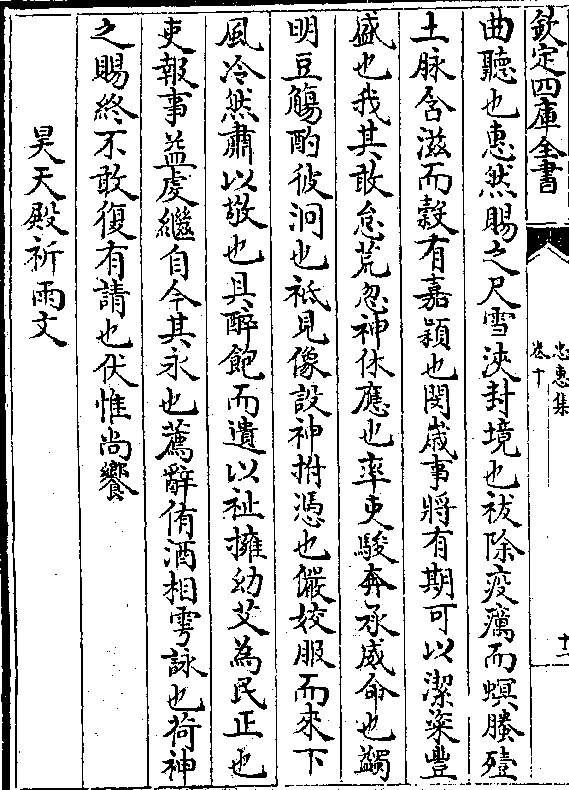 欽定四庫全書
忠惠集
卷十
十一
曲聽也惠然賜之尺雪浹封境也祓除疫癘而螟螣殪
土脉含滋而穀有嘉穎也閔嵗事將有期可以潔粢豐
盛也我其敢怠荒忽神休應也率吏駿奔承威命也蠲
明豆觴酌彼泂也祗見像設神拊憑也儼姣服而來下
風冷然肅以敬也具醉飽而遺以祉擁幼艾為民正也
吏報事益虔繼自今其永也薦辭侑酒相雩詠也荷神
之賜終不敢復有請也伏惟尚饗
昊天殿祈雨文